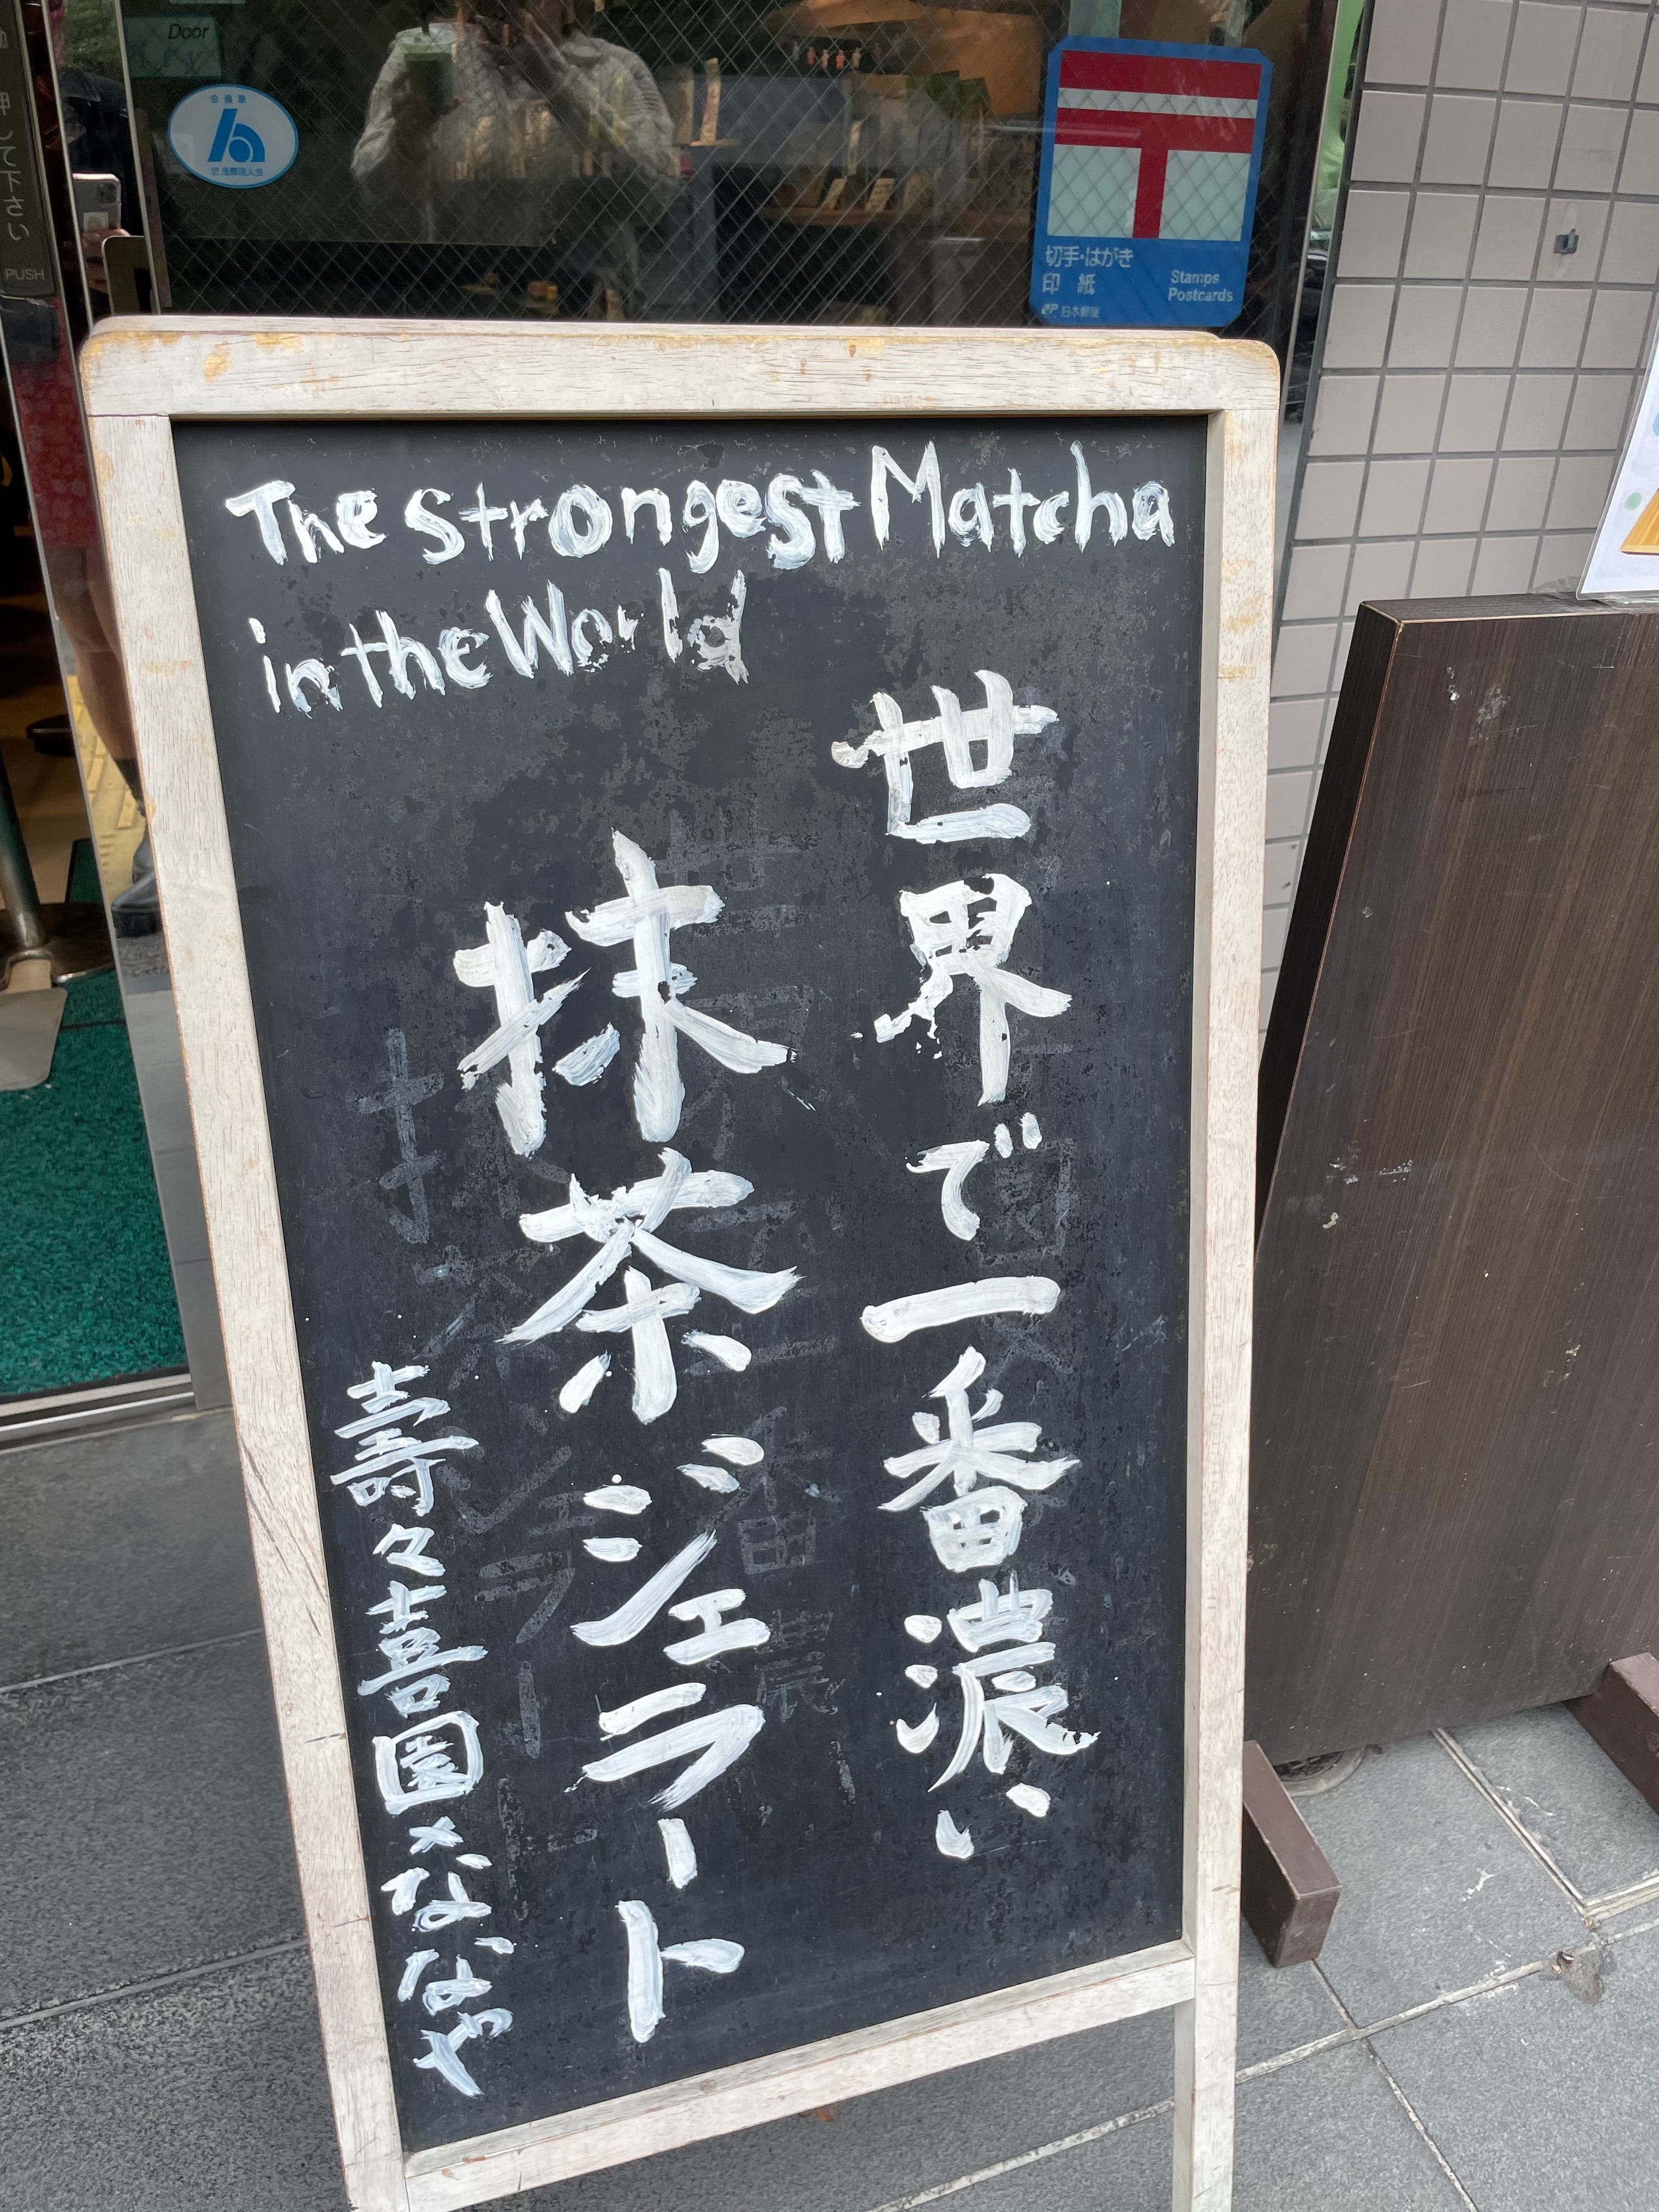 Door
押して下さい
PUSH
会員章
浅草法人会
切手・はがき
印 紙
Stamps
Postcards
JP 日本郵便
The Strongest Matcha
in the World
世界で一番濃い
抹茶ジェラート
壽々喜園×ななや